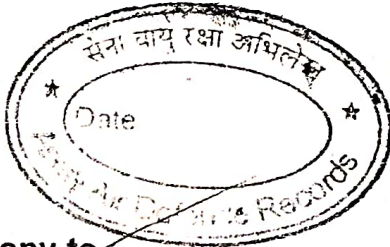 सेना वायु रक्षा अभिलेख
Date
Army Air Defence Records
Copy to